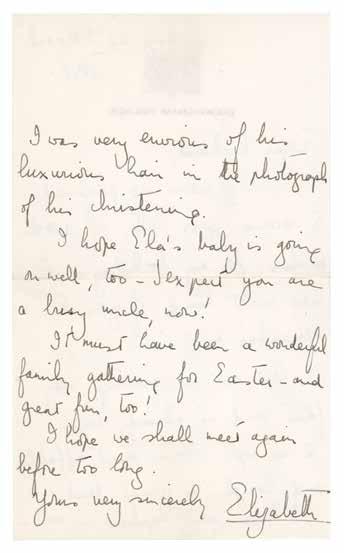 I was very envious of his
luxurious hair in the photograph
of his christening.
I hope Ela's baby is going
on well, too - I expect you are
a busy uncle, now!
It must have been a wonderful
family gathering for Easter - and
great fun, too!
I hope we shall meet again
before too long.
Yours very sincerely Elizabeth